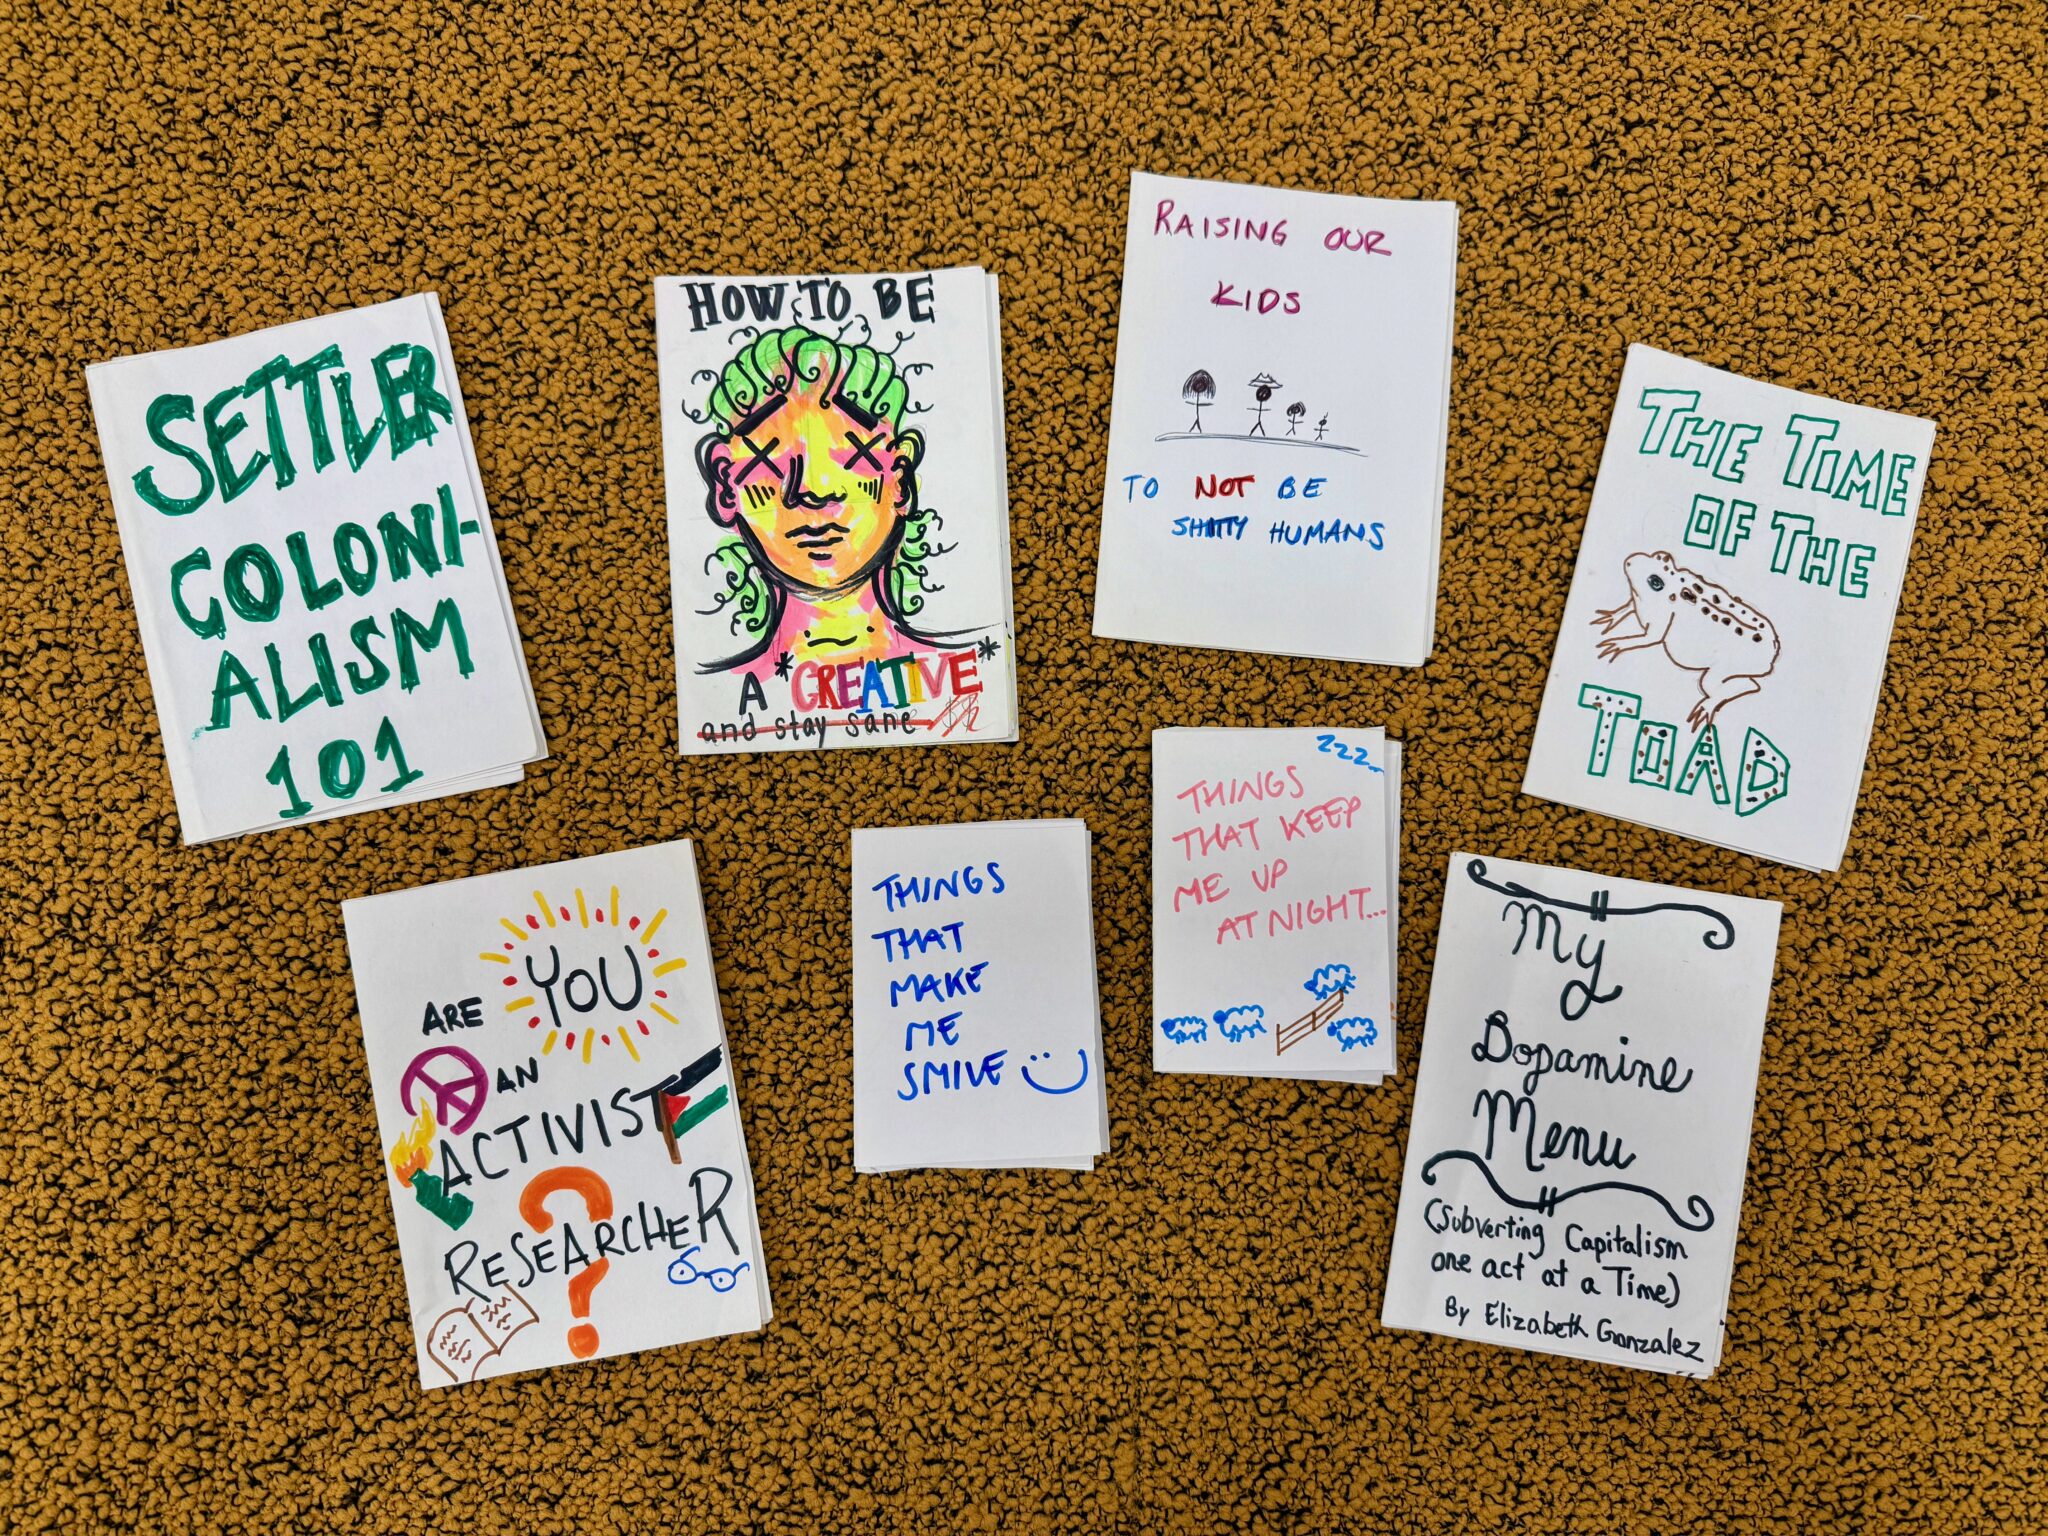 SETTLER
COLONI-
ALISM
101
HOW TO BE
A *CREATIVE*
and stay sane
RAISING OUR
KIDS
TO NOT BE
SHITTY HUMANS
THE TIME
OF THE
TOAD
ARE YOU
AN
ACTIVIST
RESEARCHER
?
THINGS
THAT
MAKE
ME
SMILE
zzz
THINGS
THAT KEEP
ME UP
AT NIGHT...
My
Dopamine
Menu
(Subverting Capitalism
one act at a Time)
By Elizabeth Gonzalez